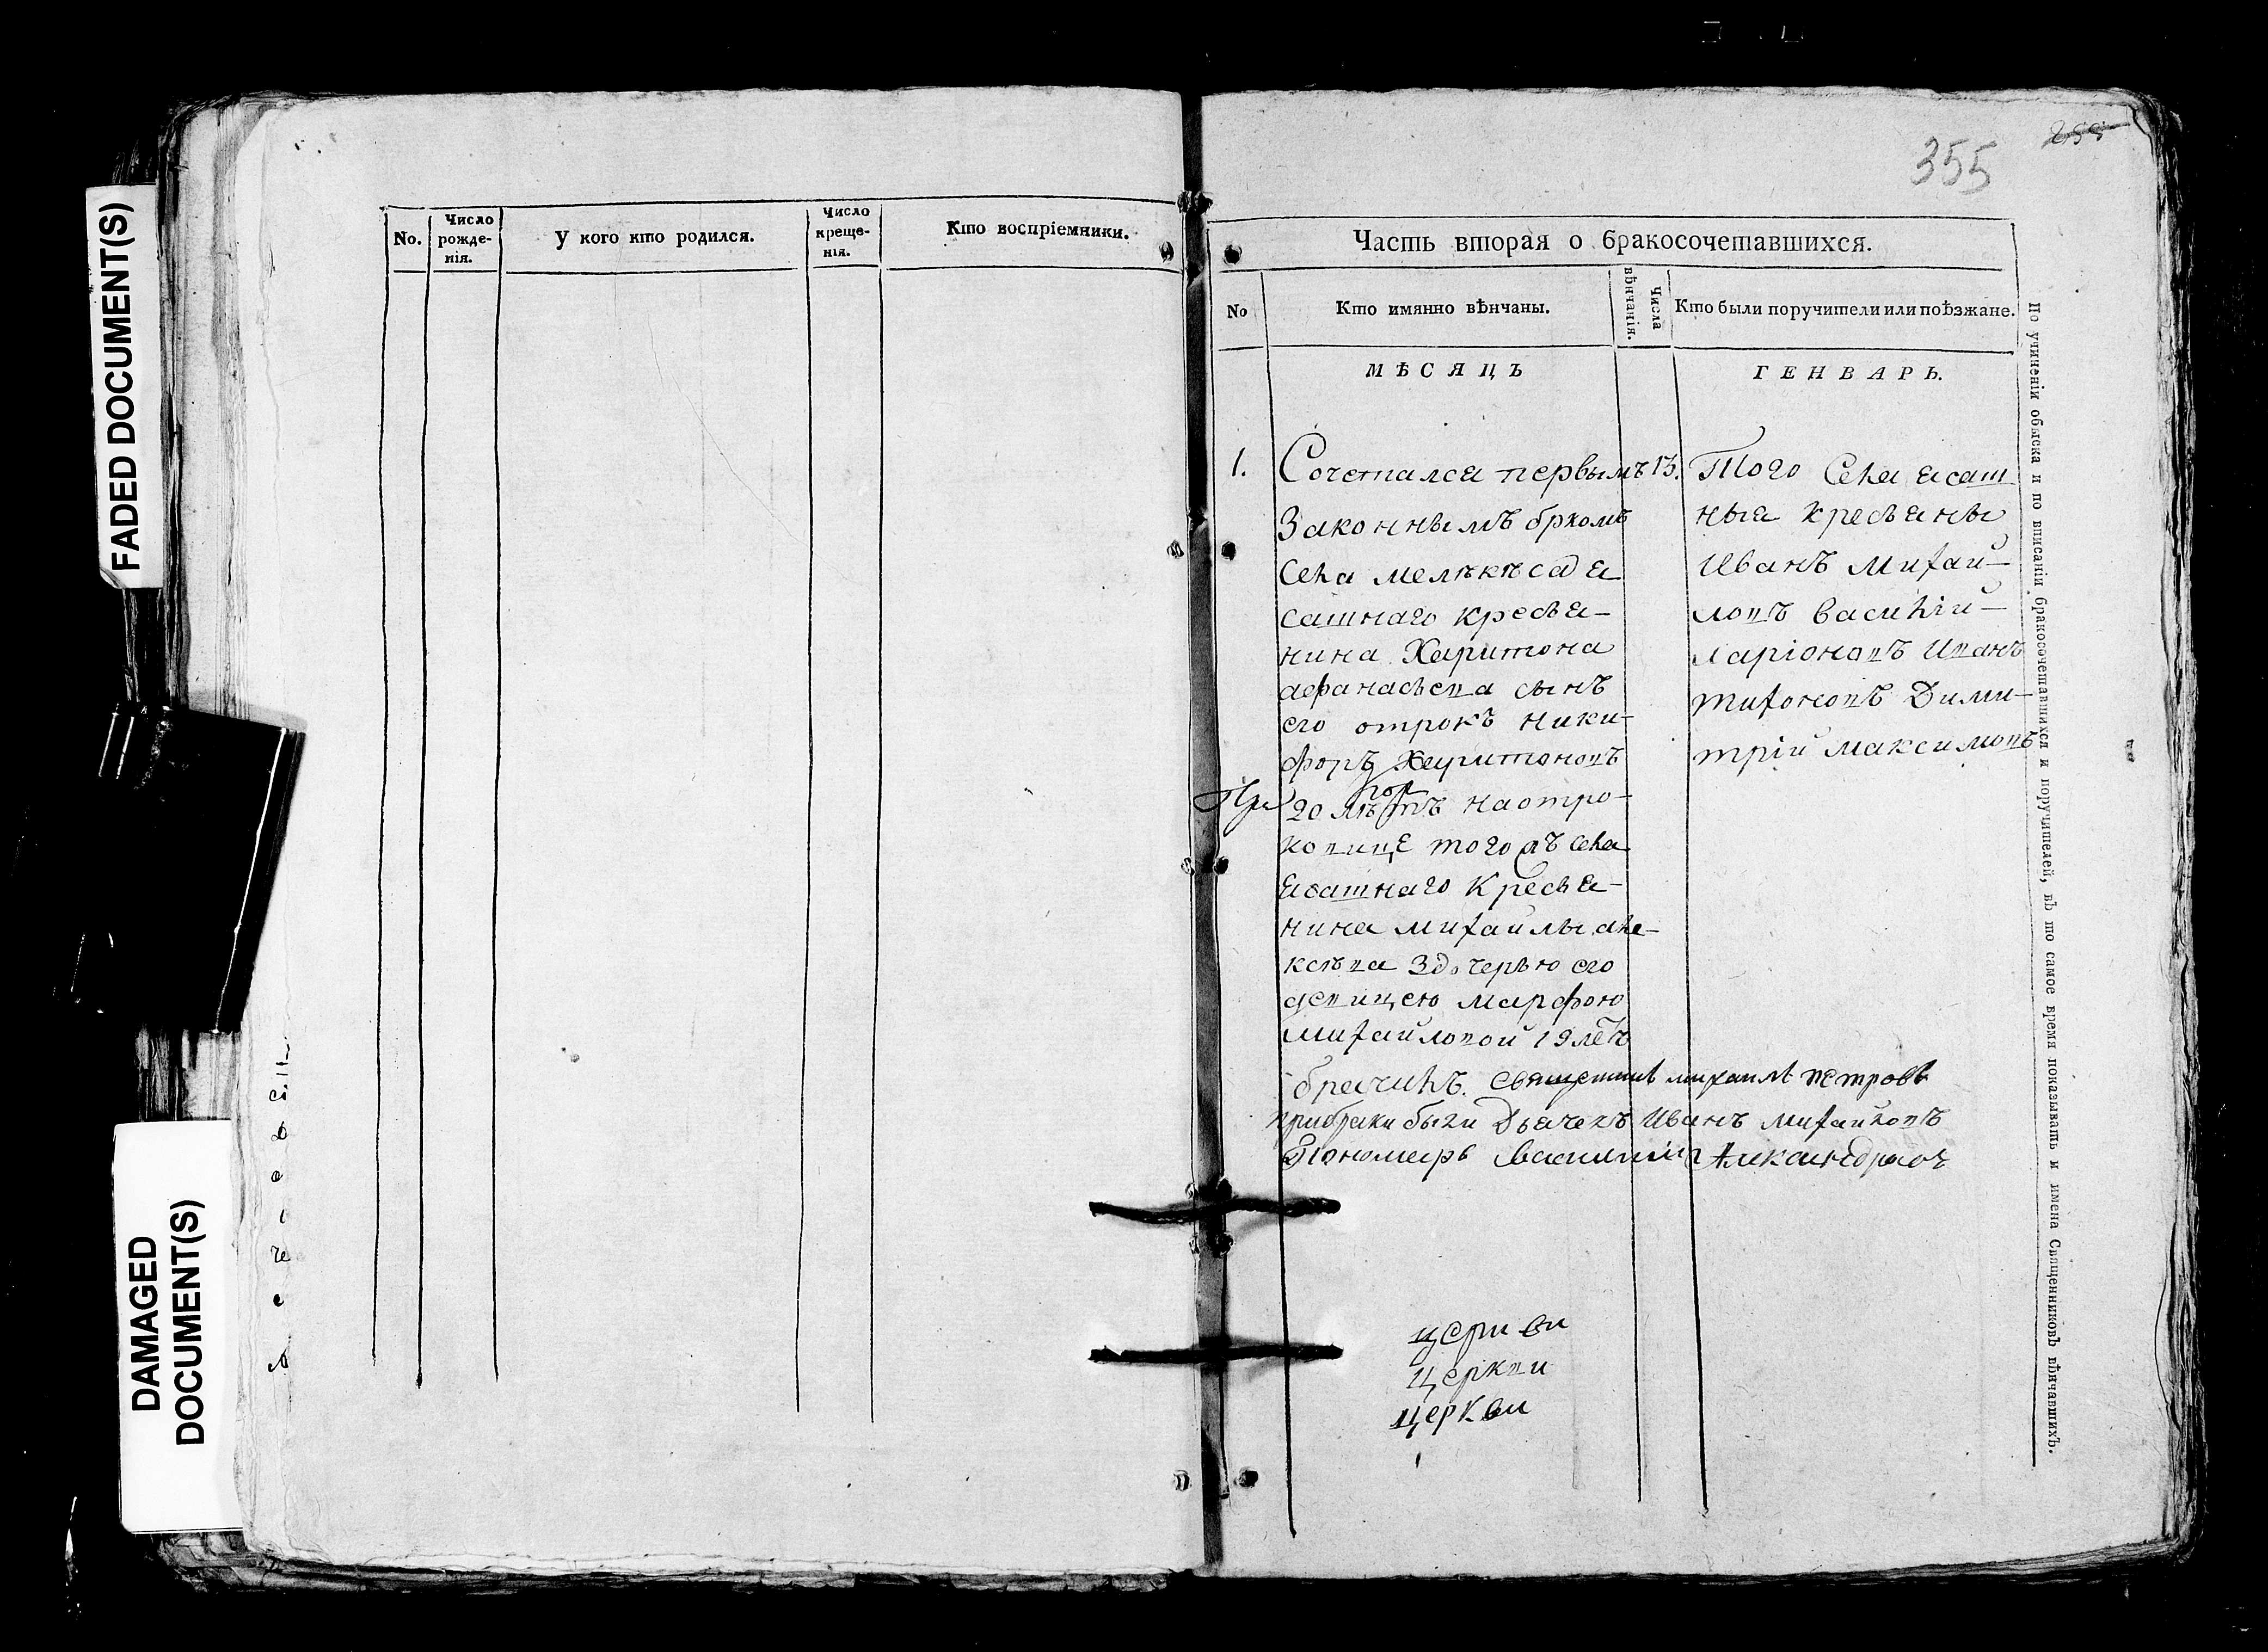 FADED DOCUMENT(S)
DAMAGED
DOCUMENT(S)
No.
Число
рожде-
нія.
У кого кто родился.
Число
креще-
нія.
Кто воспріемники.
355
255
Часть вторая о бракосочетавшихся.
No
Кто имянно вѣнчаны.
Числа
вѣнчанія.
Кто были поручители или поѣзжане.
МѢСЯЦЪ
ГЕНВАРЬ.
1.
Сочетался первымъ
Законнымъ бркомъ
села мелѣкѣса я
сашнаго кресья-
нина Харитона
афанасьева сынъ
его отрокъ ники-
форъ Харитоновъ
20 лѣтъ наотро-
ковице того села
ясашнаго кресья-
нина михайлы але-
ксѣва здочерью его
девицею марфою
михайловой 19 летъ
13.
Того села ясаш
ныя кресьяны
Иванъ михай-
ловъ василій-
ларіоновъ Иванъ
тихоновъ Дими-
трій максимовъ
брачилъ. священникъ михаилъ петровъ
прибраки были Дьячекъ Иванъ михайловъ
Пономарь василий Александровъ
церкви
церкви
церкви
По учиненіи обыска и по вписаніи бракосочетавшихся и поручителей, въ то самое время показывать и имена Священниковъ вѣнчавшихъ.